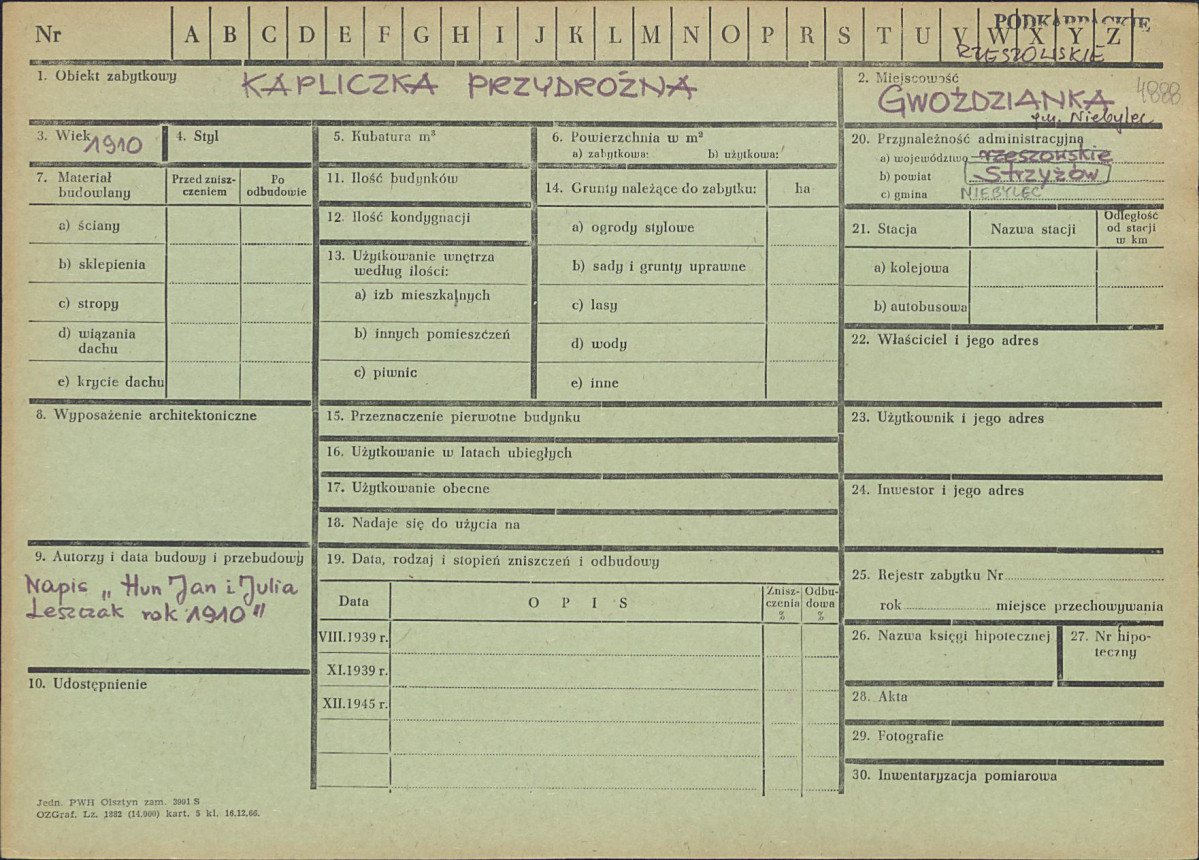 Nr A B C D E F G H I J K L M N O P R S T U V W X Y Z
PODKARPACKIE
RZESZOWSKIE
1. Obiekt zabytkowy KAPLICZKA PRZYDROŻNA
2. Miejscowość 4888
GWOŹDZIANKA
gm. Niebylec
3. Wiek 1910
4. Styl
5. Kubatura m³
6. Powierzchnia w m²
a) zabytkowa: b) użytkowa:
20. Przynależność administracyjna
a) województwo rzeszowskie
b) powiat Strzyżów
c) gmina NIEBYLEC
7. Materiał budowlany
Przed zniszczeniem
Po odbudowie
a) ściany
b) sklepienia
c) stropy
d) wiązania dachu
e) krycie dachu
11. Ilość budynków
12. Ilość kondygnacji
13. Użytkowanie wnętrza
według ilości:
a) izb mieszkalnych
b) innych pomieszczeń
c) piwnic
14. Grunty należące do zabytku: ha
a) ogrody stylowe
b) sady i grunty uprawne
c) lasy
d) wody
e) inne
21. Stacja
Nazwa stacji
Odległość
od stacji
w km
a) kolejowa
b) autobusowa
22. Właściciel i jego adres
8. Wyposażenie architektoniczne
15. Przeznaczenie pierwotne budynku
16. Użytkowanie w latach ubiegłych
17. Użytkowanie obecne
18. Nadaje się do użycia na
23. Użytkownik i jego adres
24. Inwestor i jego adres
9. Autorzy i data budowy i przebudowy
Napis „Hun Jan i Julia
Leszczak rok 1910"
10. Udostępnienie
19. Data, rodzaj i stopień zniszczeń i odbudowy
Data
OPIS
Zniszczenia
%
Odbudowa
%
VIII.1939 r.
XI.1939 r.
XII.1945 r.
25. Rejestr zabytku Nr
rok miejsce przechowywania
26. Nazwa księgi hipotecznej
27. Nr hipoteczny
28. Akta
29. Fotografie
30. Inwentaryzacja pomiarowa
Jedn. PWH Olsztyn zam. 3991 S
OZGraf. Lz. 1882 (14.000) kart. 5 kl. 16.12.66.